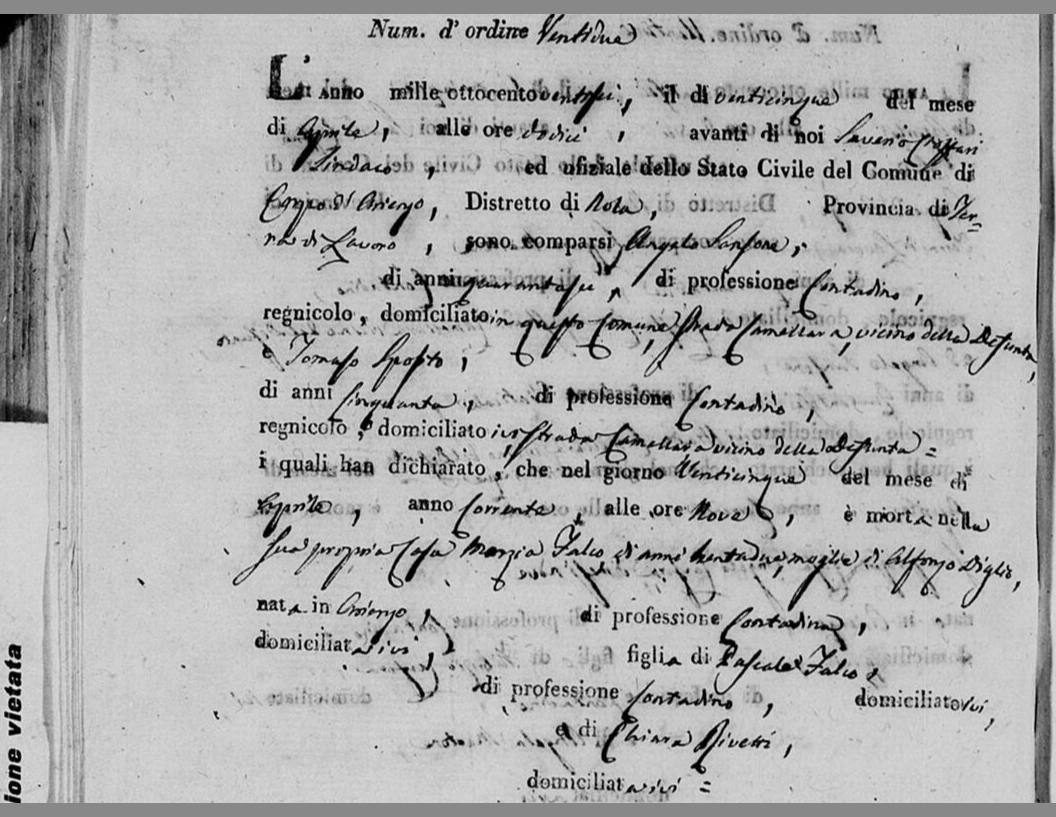 Num. d' ordine Ventidue
L' anno mille ottocento ventisei, il di venticinque del mese
di Aprile, alle ore dodici, avanti di noi Saverio
Sindaco, ed ufiziale dello Stato Civile del Comune di
d' Arienzo, Distretto di Nola, Provincia di Ter-
ra di Lavoro, sono comparsi Angelo Sanfone,
di anni quarantasei, di professione Contadino,
regnicolo, domiciliato in questo Comune, strada Camellara, vicino della Defunta,
e Tomaso Sposito,
di anni Cinquanta, di professione Contadino,
regnicolo, domiciliato ivi strada Camellara vicino della Defunta =
i quali han dichiarato, che nel giorno Venticinque del mese di
Aprile, anno Corrente, alle ore Nove, è morta nella
sua propria Casa Marzia Falco, di anni trentadue, moglie di Alfonzo Diglio,
nata in Arienzo, di professione Contadina,
domiciliata ivi, figlia di Pascale Falco
di professione Contadino, domiciliato ivi,
e di Chiara Rivetti,
domiciliata ivi =
ione vietata